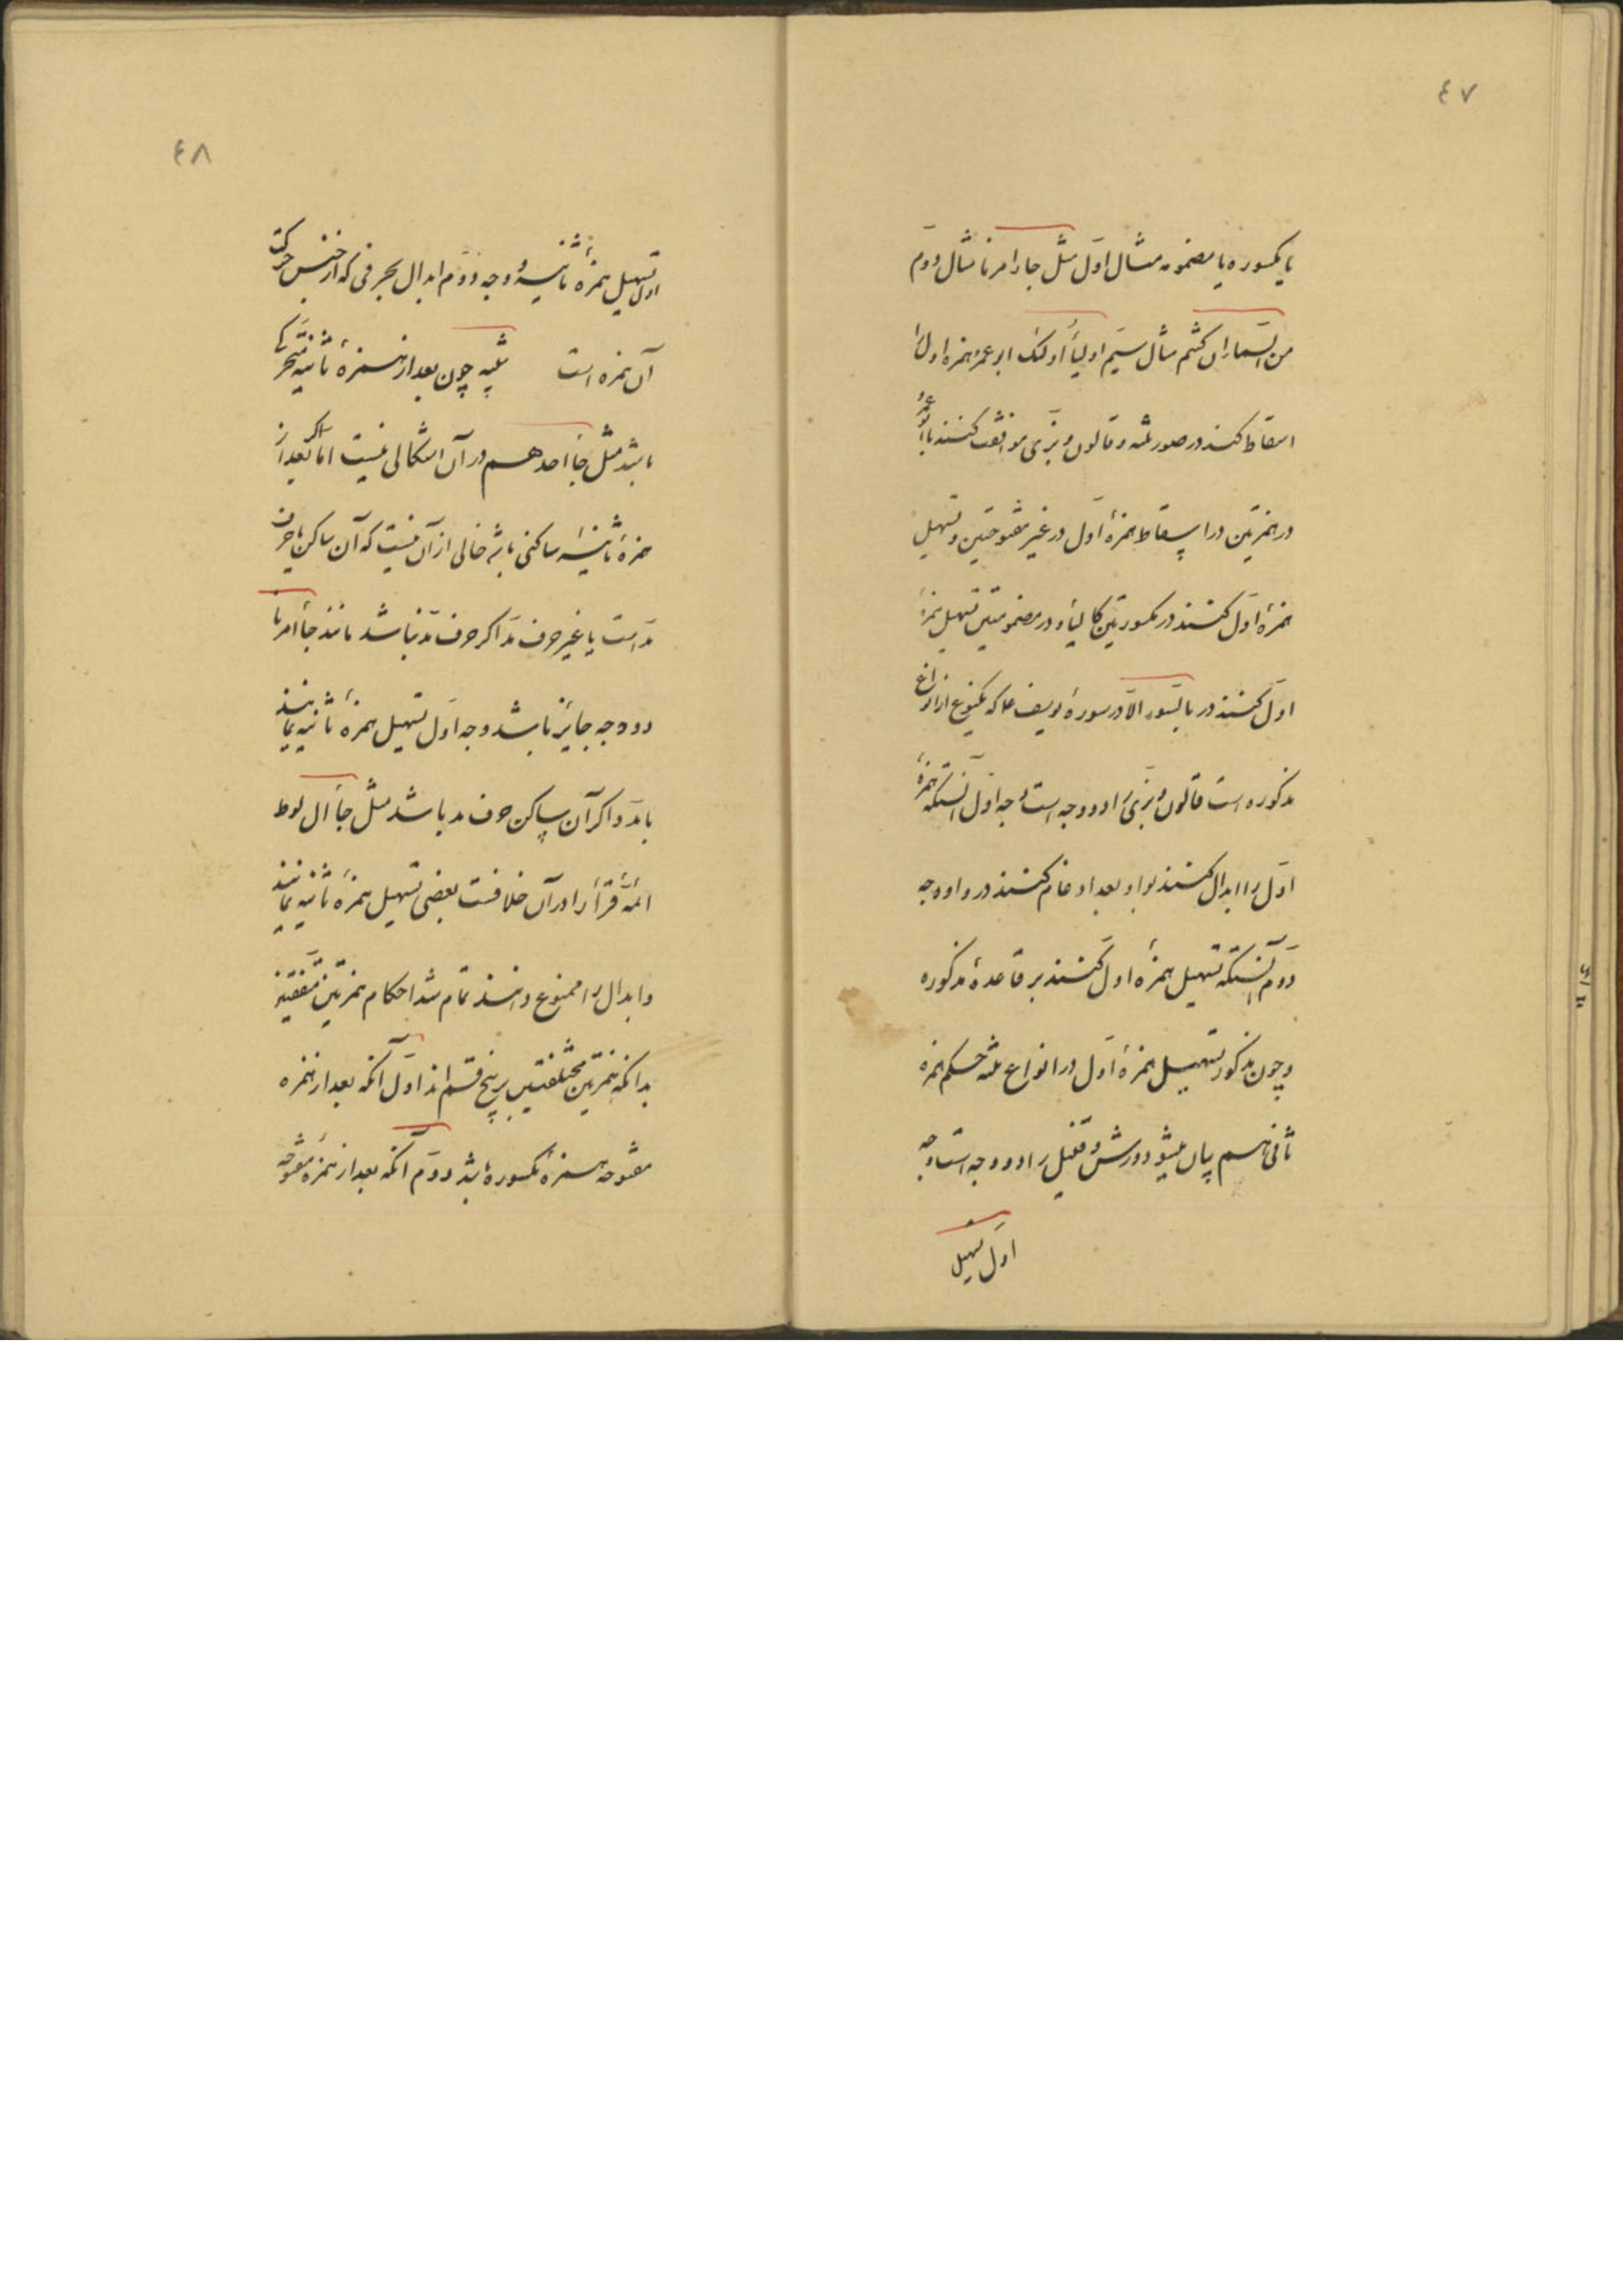 ٤٧
یا مکسوره یا مضمومه مثال اوّل مثل جاء امرنا مثال دوّم
من السّماء ان کنتم مثال سیّم اولیاءُ اولئک ابو عمرو همزه اول را
اسقاط کند در صور ثلثه و قالون و بزّی موافقت کنند با ابو عمرو
در همزتین در اسقاط همزهٔ اوّل در غیر مفتوحتین و تسهیل
همزهٔ اوّل کنند در مکسورتین کالیاء و در مضمومتین تسهیل همزهٔ
اوّل کنند در بالسّوء الّا در سورهٔ یوسف ع که یکنوع از انواع
مذکوره است قالون و بزّی را دو وجه است وجه اوّل آنستکه همزهٔ
اوّل را ابدال کنند بواو بعد ادغام کنند در واو وجه
دوّم آنستکه تسهیل همزهٔ اول کنند بر قاعدهٔ مذکوره
و چون مذکور تسهیل همزهٔ اوّل در انواع ثلثه حکم همزه
ثانی هم بیان میشود ورش و قنبل را دو وجه است وجه
اوّل تسهیل
٤٨
اول تسهیل همزهٔ ثانیه و وجه دوّم ابدال بحرفی که از جنس حرکت
آن همزه است تنبیه چون بعد از همزهٔ ثانیه متحرکی
باشد مثل جاء احدهم در آن اشکالی نیست امّا اگر بعد از
همزهٔ ثانیه ساکنی باشد خالی از آن نیست که آن ساکن یا حرف
مدّ است یا غیر حرف مدّ اگر حرف مدّ نباشد مانند جاء امرنا
دو وجه جایز باشد وجه اوّل تسهیل همزهٔ ثانیه نمایند
یا مدّ و اگر آن ساکن حرف مد باشد مثل جاءَ ال لوط
ائمّهٔ قرّاء را در آن خلافست بعضی تسهیل همزهٔ ثانیه نمایند
و ابدال را ممنوع دانند تمام شد احکام همزتین متّفقتین
بدانکه همزتین مختلفتین بر پنج قسم اند اوّل آنکه بعد از همزه
مفتوحه همزهٔ مکسوره باشد دوّم آنکه بعد از همزهٔ مفتوحه